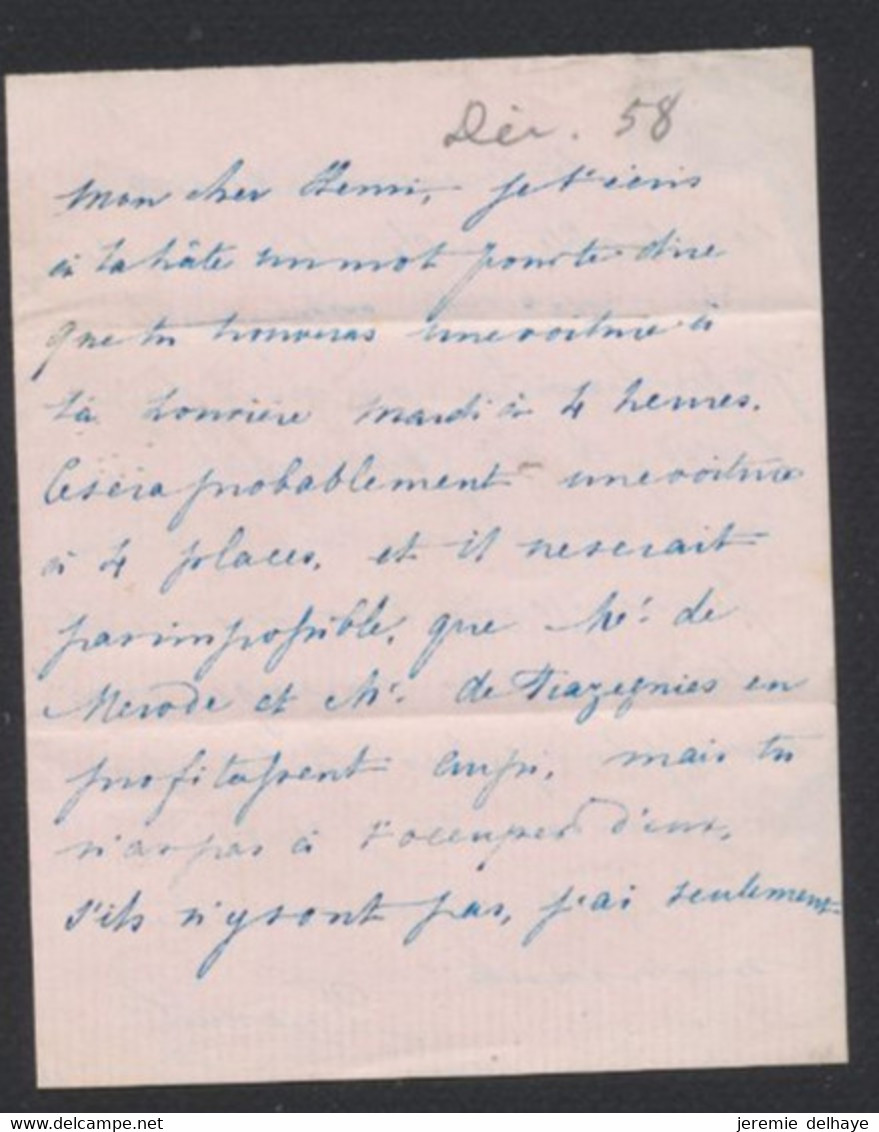 Déc. 58
Mon cher Henri, je t'écris
à la hâte un mot pour te dire
que tu trouveras une voiture à
la Louvière mardi à 4 heures.
Ce sera probablement une voiture
à 4 places, et il ne serait
pas impossible, que Mr. de
Merode et Mr. de Trazegnies en
profitassent aussi, mais tu
n'as pas à t'occuper d'eux,
s'ils n'y sont pas, j'ai seulement
jeremie delhaye